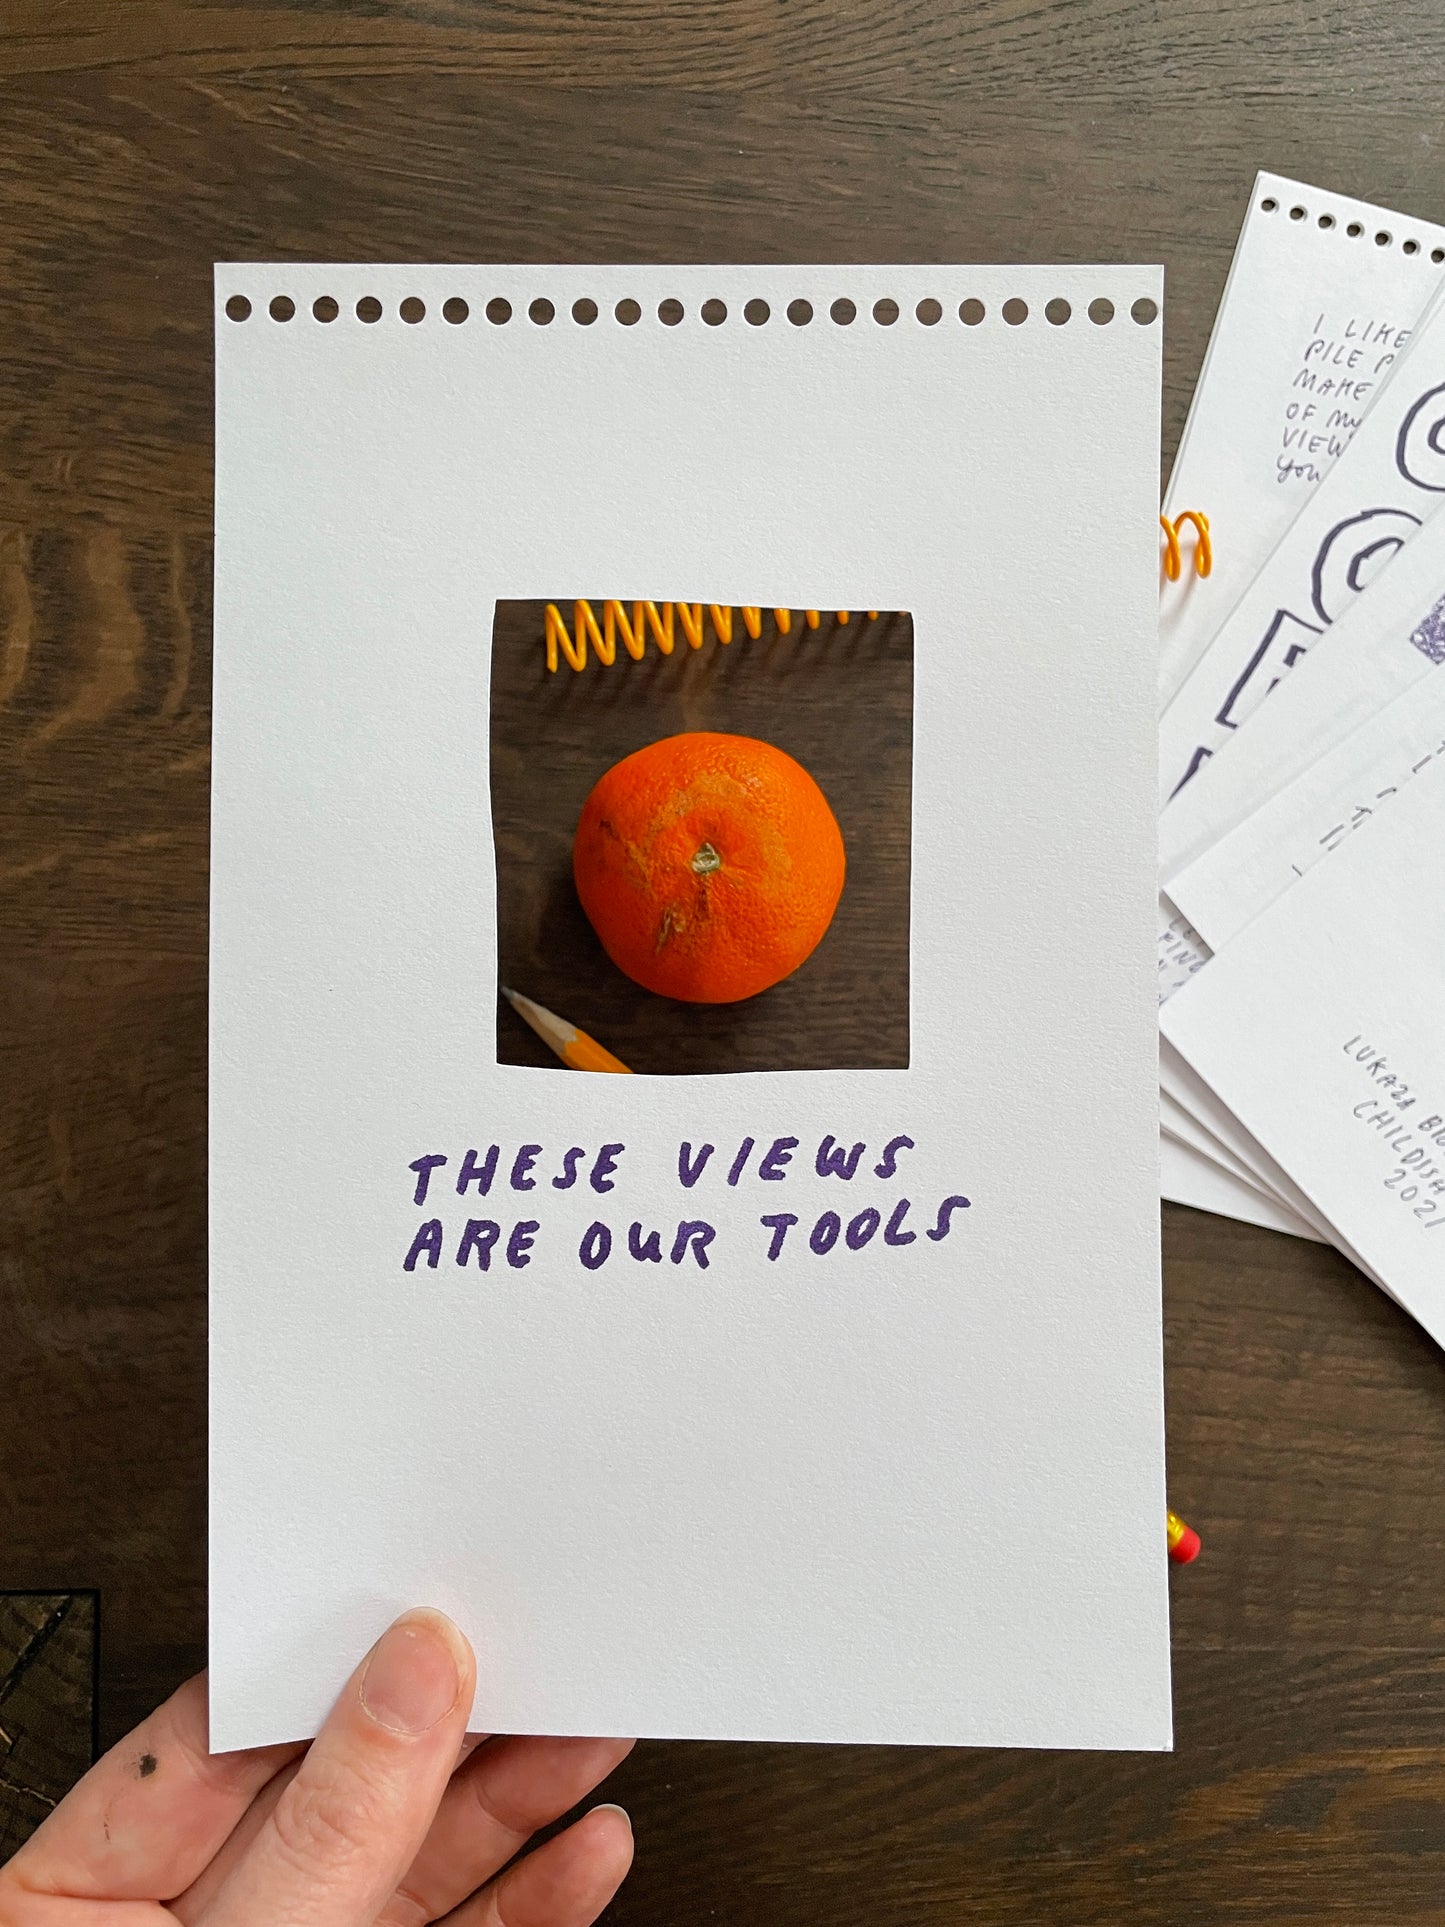 THESE VIEWS
ARE OUR TOOLS
I LIKE
PILE
MAKE
OF
VIEW
YOU
LUKAZA
CHILDISH
2021